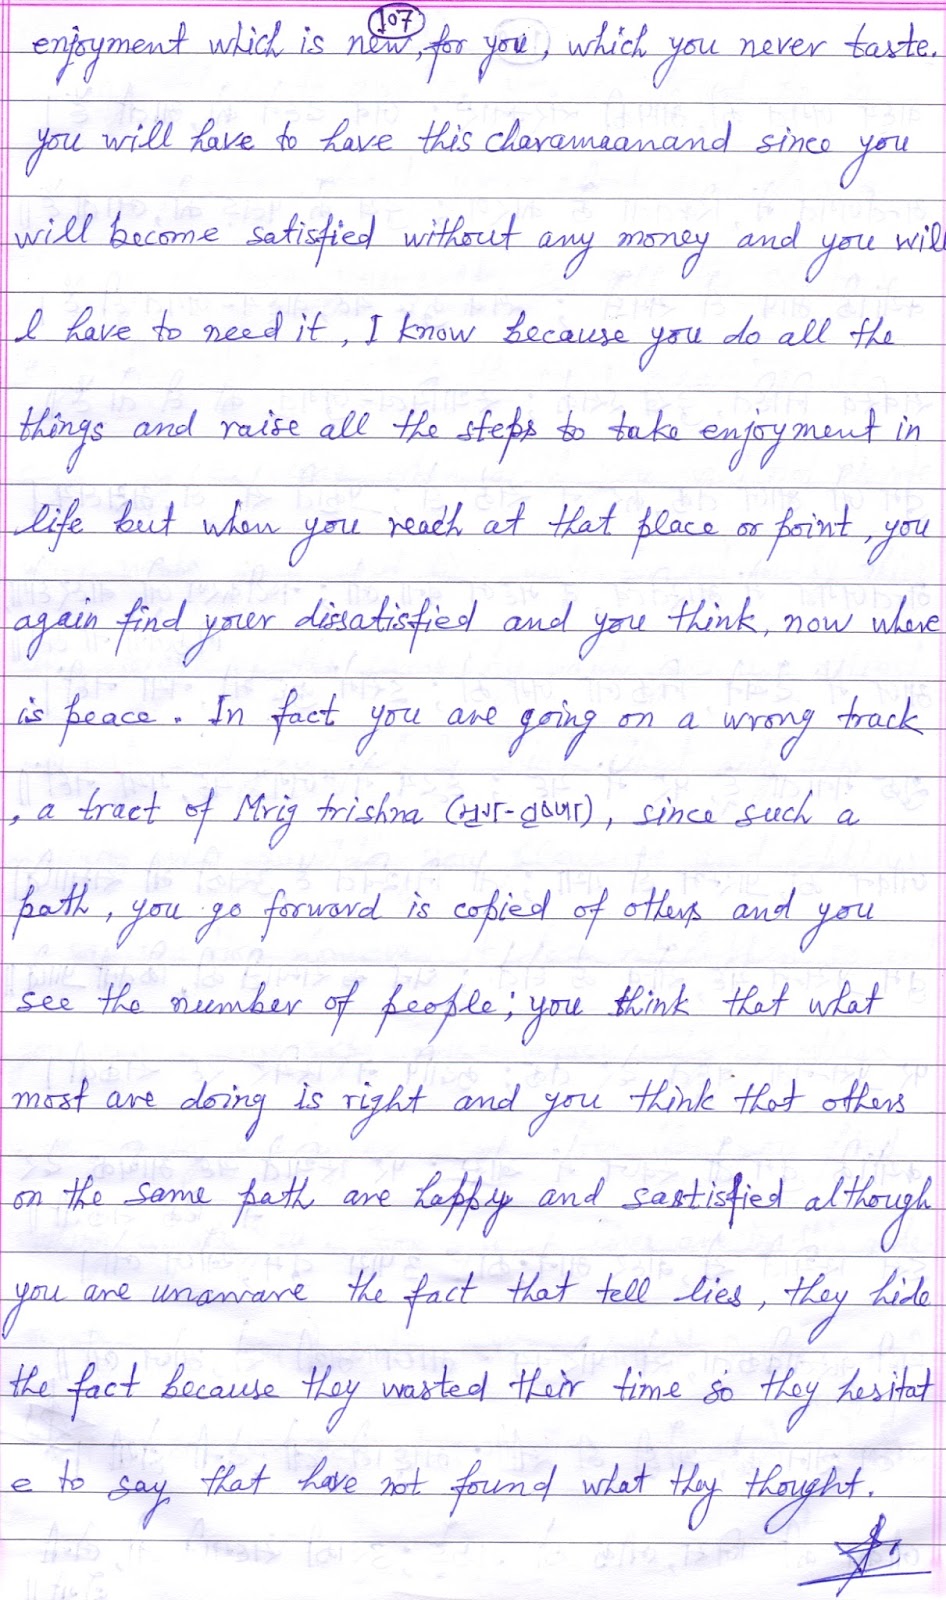 107
enjoyment which is new, for you, which you never taste.
you will have to have this charamaanand since you
will become satisfied without any money and you wil
l have to need it, I know because you do all the
things and raise all the steps to take enjoyment in
life but when you reach at that place or point, you
again find your dissatisfied and you think, now where
is peace. In fact you are going on a wrong track
, a tract of Mrig trishna (मृग-तृष्णा), since such a
path, you go forward is copied of others and you
see the number of people; you think that what
most are doing is right and you think that others
on the same path are happy and sastisfied although
you are unaware the fact that tell lies, they hide
the fact because they wasted their time so they hesitat
e to say that have not found what they thought.